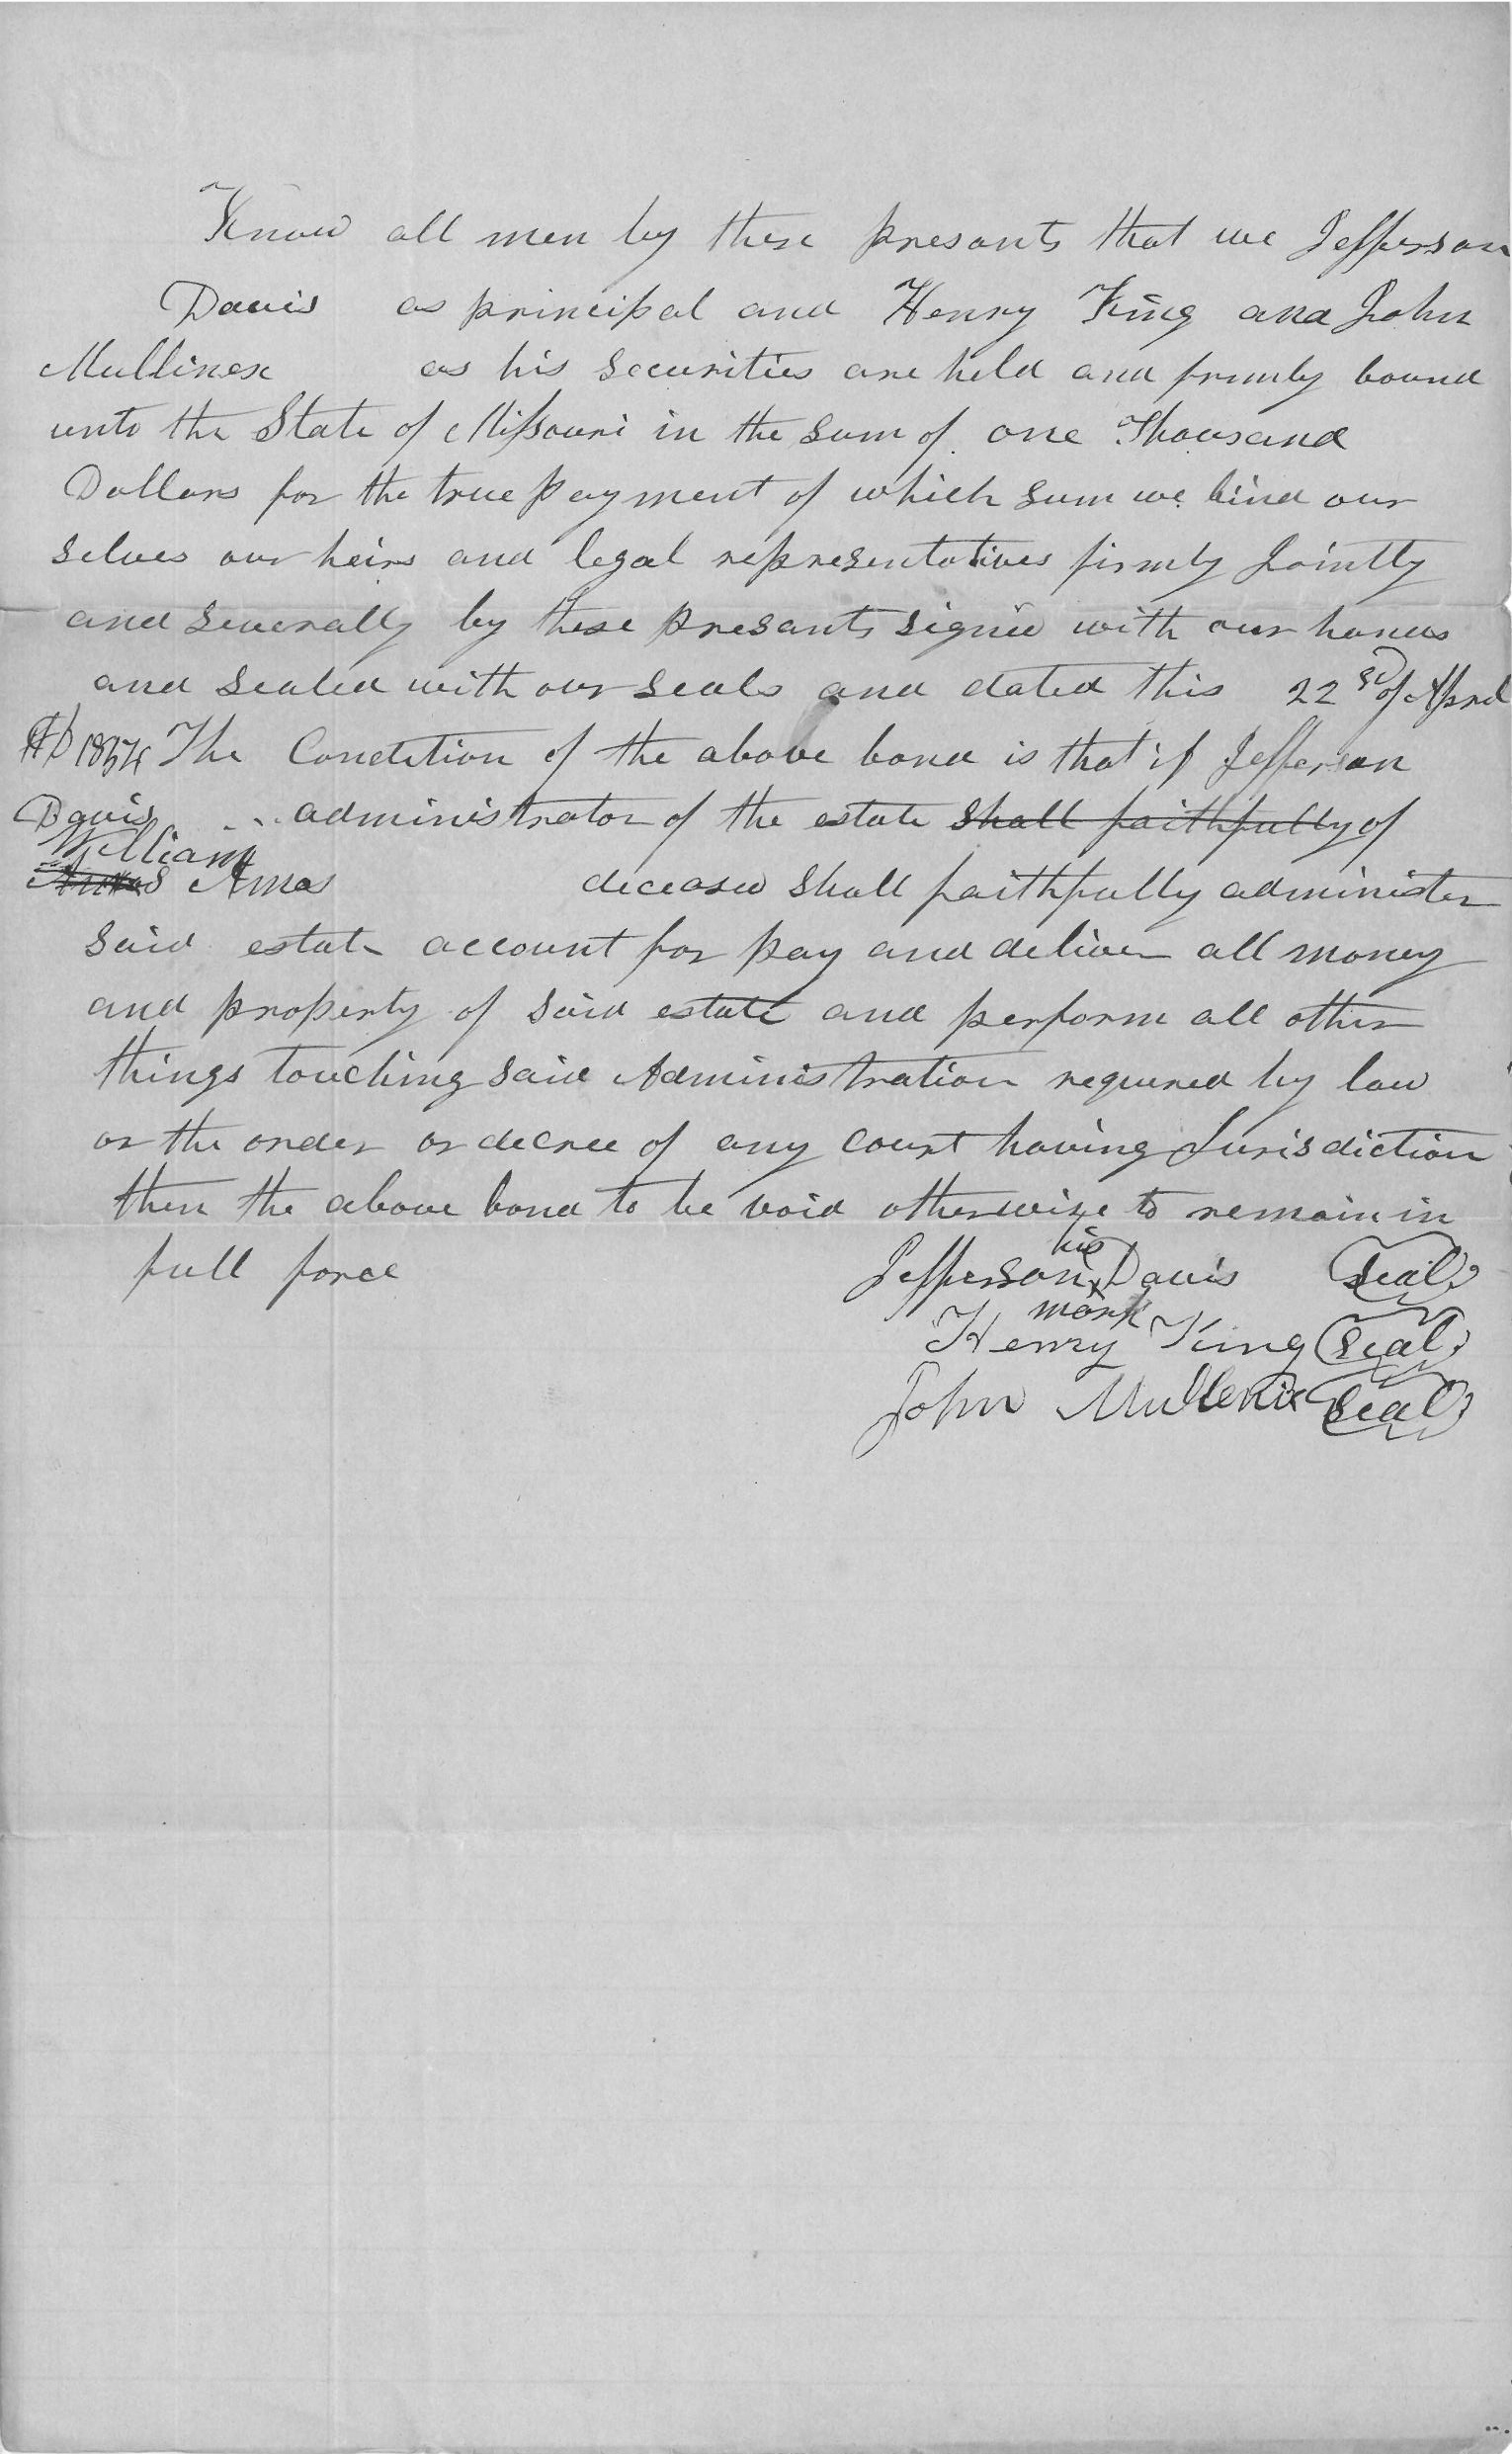 Know all men by these presants that we Jefferson
Davis as principal and Henry King and John
Mullinex as his securities are held and firmly bound
unto the State of Missouri in the sum of one Thousand
Dollars for the true payment of which sum we bind our
selves our heirs and legal representatives firmly Jointly
and severally by these presants signed with our hands
and sealed with our seals and dated this 22 sd of April
AD 1854 The Condition of the above bond is that if Jefferson
Davis administrator of the estate shall faithfully of
William
Amos deceased shall faithfully administer
said estate account for pay and deliver all money
and property of said estate and perform all other
things touching said Administration required by law
or the order or decree of any court having Jurisdiction
then the above bond to be void otherwise to remain in
full force
his
Jefferson x Davis Seal
mark
Henry King Seal
John Mullenix Seal